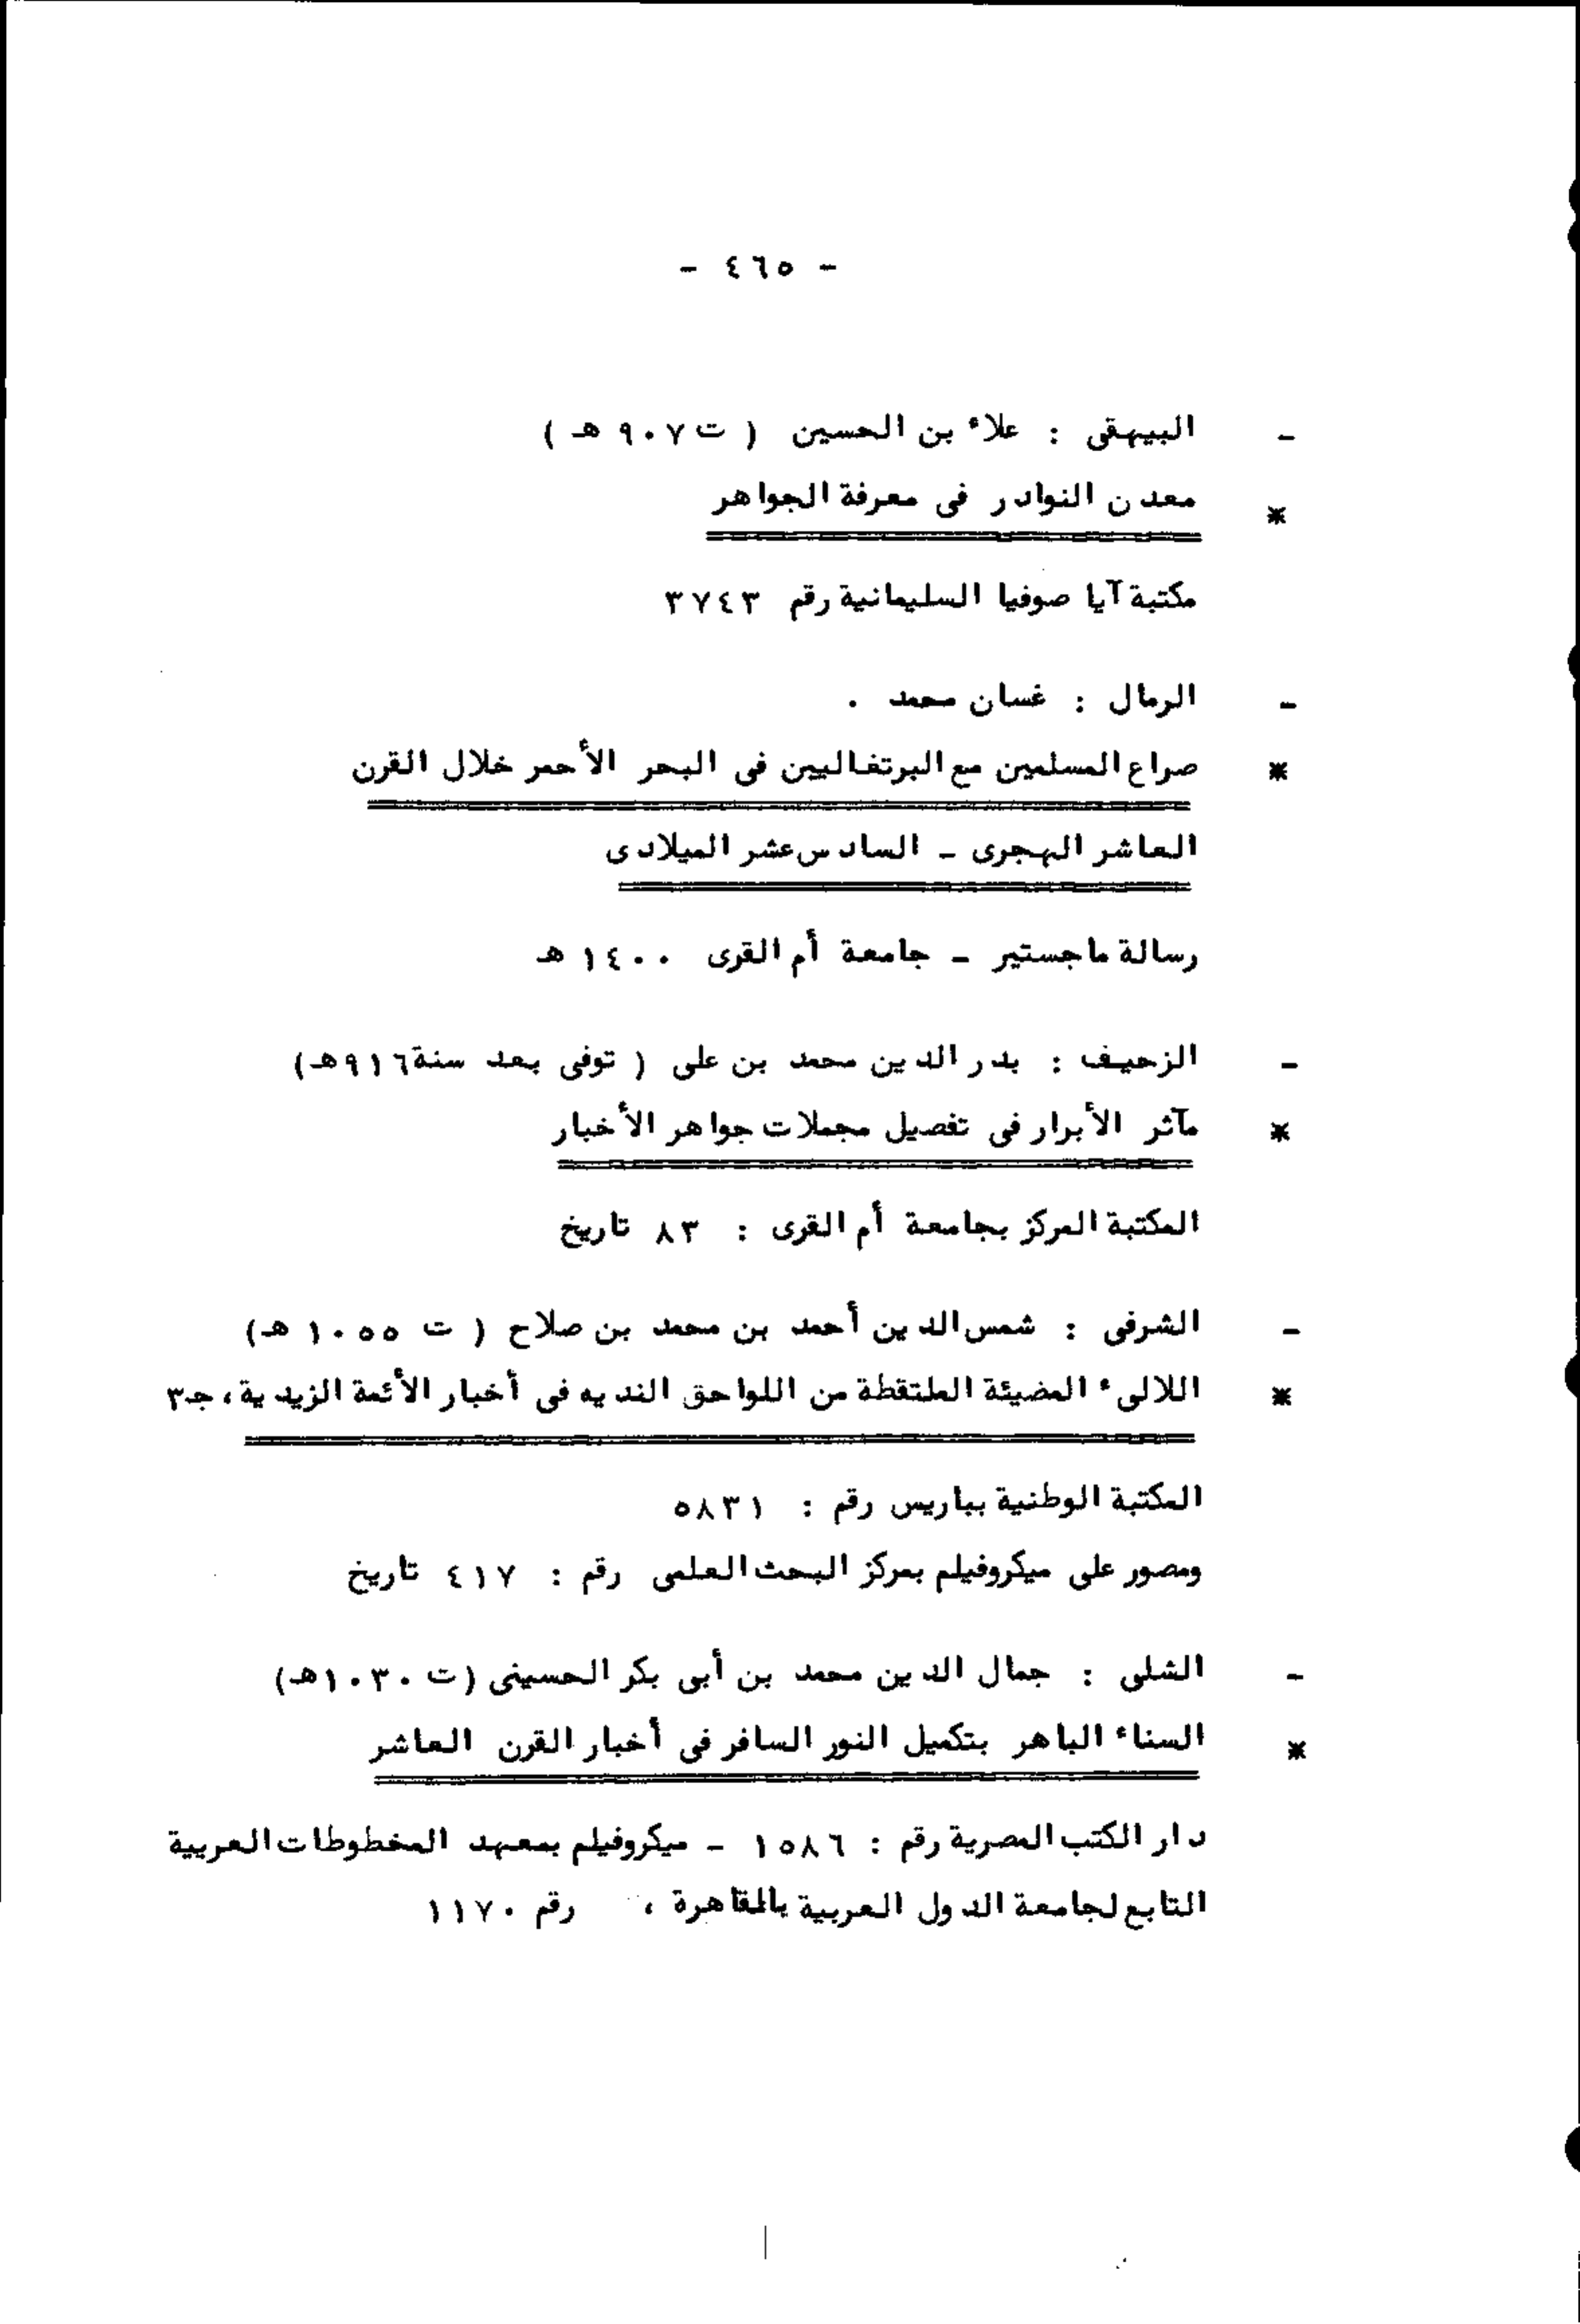 - ٤٦٥ -
- البيهقى : علاء بن الحسين ( ت ٩٠٧ هـ )
* معدن النوادر فى معرفة الجواهر
مكتبة آيا صوفيا السليمانية رقم ٣٧٤٣
- الرمال : غسان محمد .
* صراع المسلمين مع البرتغاليين فى البحر الأحمر خلال القرن
العاشر الهجرى - السادس عشر الميلادى
رسالة ماجستير - جامعة أم القرى ١٤٠٠ هـ
- الزحيف : بدر الدين محمد بن على ( توفى بعد سنة ٩١٦هـ)
* مآثر الأبرار فى تفصيل مجملات جواهر الأخبار
المكتبة المركز بجامعة أم القرى : ٨٣ تاريخ
- الشرفى : شمس الدين أحمد بن محمد بن صلاح ( ت ١٠٥٥ هـ)
* اللالىء المضيئة الملتقطة من اللواحق النديه فى أخبار الأئمة الزيدية ، جـ٣
المكتبة الوطنية بباريس رقم : ٥٨٣١
ومصور على ميكروفيلم بمركز البحث العلمى رقم : ٤١٧ تاريخ
- الشلى : جمال الدين محمد بن أبى بكر الحسينى (ت ١٠٣٠هـ)
* السناء الباهر بتكميل النور السافر فى أخبار القرن العاشر
دار الكتب المصرية رقم : ١٥٨٦ - ميكروفيلم بمعهد المخطوطات العربية
التابع لجامعة الدول العربية بالقاهرة ، رقم ١١٧٠